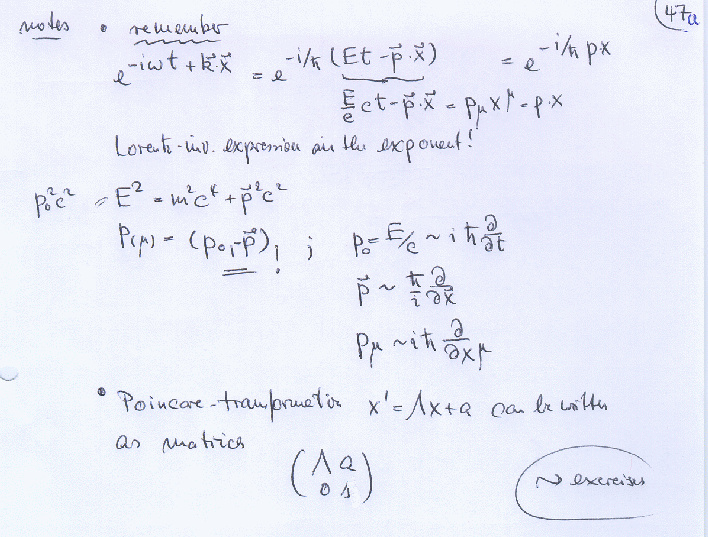 47a
notes • remember
e^{-iωt + k⃗·x⃗} = e^{-i/ħ (Et - p⃗·x⃗)} = e^{-i/ħ px}
E/c ct - p⃗·x⃗ = p_μ x^μ = p·x
Lorentz-inv. expression in the exponent!
p₀²c² = E² = m²c⁴ + p⃗²c²
p_(μ) = (p₀, -p⃗)! ; p₀ = E/c ~ iħ ∂/∂t
p⃗ ~ ħ/i ∂/∂x⃗
p_μ ~ iħ ∂/∂x^μ
• Poincare-transformation x' = Λx + a can be written
as matrices
(Λ a
0 1)
~ exercises